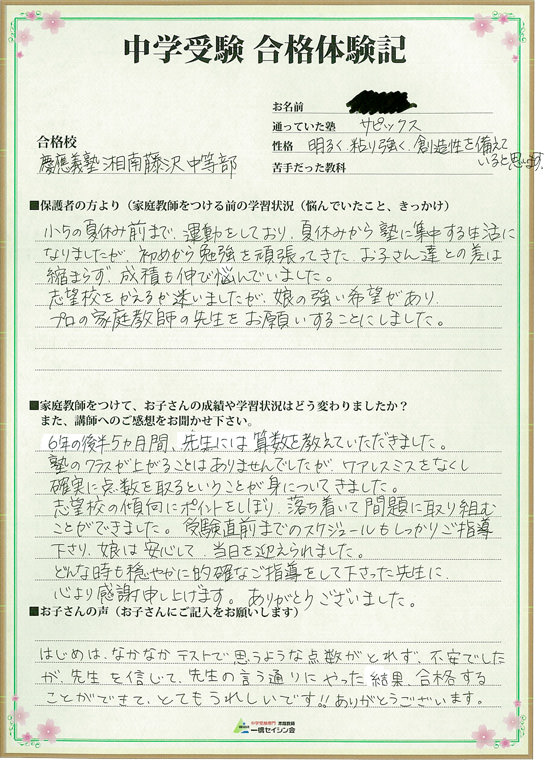 中学受験 合格体験記
お名前
通っていた塾 サピックス
合格校
性格 明るく、粘り強く、創造性を備えて
いると思います。
慶應義塾湘南藤沢中等部
苦手だった教科
■保護者の方より（家庭教師をつける前の学習状況（悩んでいたこと、きっかけ）
小5の夏休み前まで、運動をしており、夏休みから塾に集中する生活に
なりましたが、初めから勉強を頑張ってきた、お子さん達との差は
縮まらず、成績も伸び悩んでいました。
志望校をかえるか迷いましたが、娘の強い希望があり、
プロの家庭教師の先生をお願いすることにしました。
■家庭教師をつけて、お子さんの成績や学習状況はどう変わりましたか？
また、講師へのご感想をお聞かせ下さい。
6年の後半5ヵ月間、先生には算数を教えていただきました。
塾のクラスが上がることはありませんでしたが、ケアレスミスをなくし
確実に点数を取るということが身についてきました。
志望校の傾向にポイントをしぼり、落ち着いて問題に取り組む
ことができました。受験直前までのスケジュールもしっかりご指導
下さり、娘は安心して、当日を迎えられました。
どんな時も穏やかに的確なご指導をして下さった先生に、
心より感謝申し上げます。ありがとうございました。
■お子さんの声（お子さんにご記入をお願いします）
はじめは、なかなかテストで思うような点数がとれず、不安でした
が、先生を信じて、先生の言う通りにやった結果、合格する
ことができて、とてもうれしいです!!ありがとうございます。
中学受験専門 家庭教師
一橋セイシン会